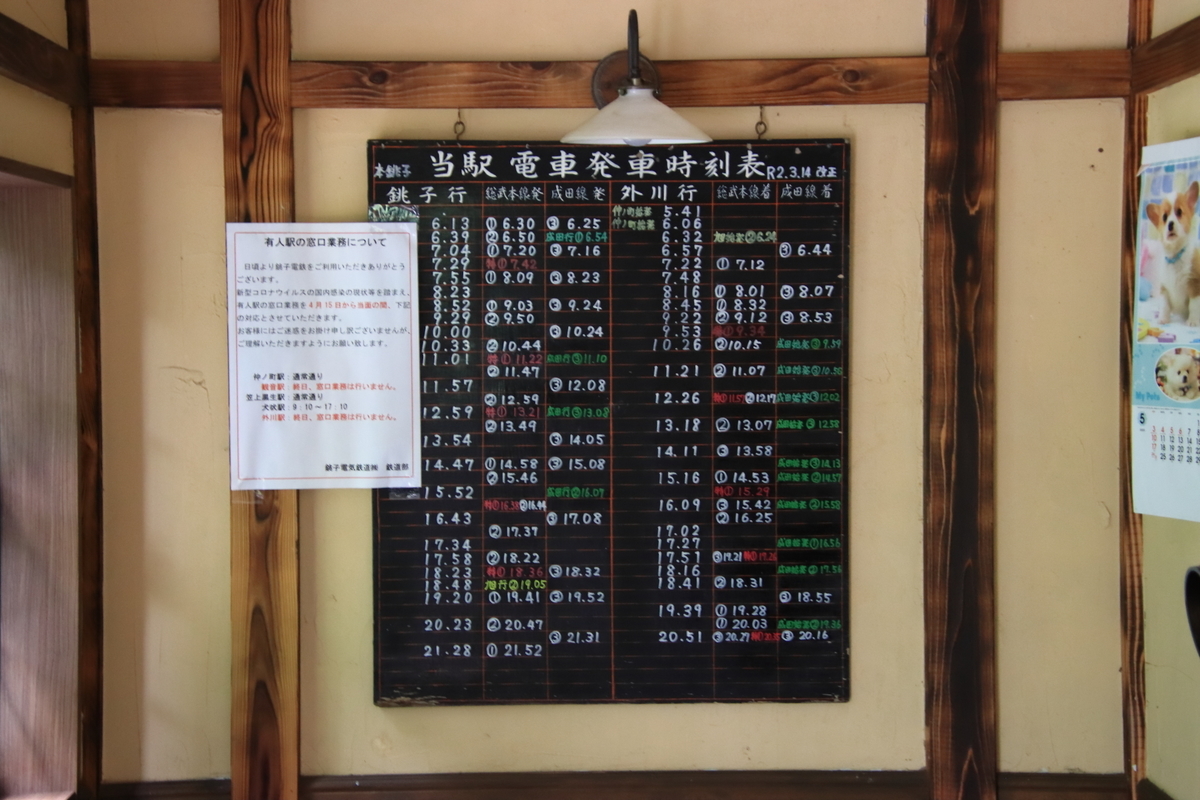 本銚子 当駅電車発車時刻表 R2.3.14 改正
銚子行 総武本線発 成田線発 外川行 総武本線着 成田線着
仲ノ町始発 5.41
6.13 ① 6.30 ③ 6.25 仲ノ町始発 6.06
6.39 ② 6.50 成田行① 6.54 6.32
7.04 ① 7.20 ③ 7.16 6.57 ③ 6.44
7.29 特① 7.42 7.22 ① 7.12
7.55 ① 8.09 ③ 8.23 7.48
8.23 8.16 ① 8.01 ③ 8.07
8.52 ① 9.03 ③ 9.24 8.45 ① 8.32
9.29 ② 9.50 9.22 ② 9.12 ③ 8.53
10.00 ③ 10.24 9.53 特① 9.34
10.33 ② 10.44 10.26 ② 10.15 成田始発② 9.59
11.01 特① 11.22 成田行③ 11.10
② 11.47 11.21 ② 11.07
11.57 ③ 12.08
② 12.59 12.26 特① 11.57 ② 12.17 成田始発③ 12.02
12.59 特① 13.21 成田行③ 13.08
② 13.49 13.18 ② 13.07 成田始発③ 12.58
13.54 ③ 14.05
14.11 ③ 13.58
14.47 ① 14.58 ③ 15.08 成田始発③ 14.13
② 15.46 15.16 ① 14.53 成田始発② 14.57
15.52 成田行② 16.07 特① 15.29
特① 16.38 ② 16.44 16.09 ③ 15.42 成田始発② 15.58
16.43 ③ 17.08 ② 16.25
② 17.37 17.02
17.34 17.27 成田始発① 16.56
17.58 ② 18.22 17.51 ③ 17.21
18.23 特① 18.36 ③ 18.32 18.16
18.48 旭行② 19.05 18.41 ② 18.31
19.20 ① 19.41 ③ 19.52 ③ 18.55
19.39 ① 19.28
20.23 ② 20.47 ① 20.03 成田始発② 19.36
③ 21.31 20.51 ③ 20.29 ③ 20.16
21.28 ① 21.52
有人駅の窓口業務について
日頃より銚子電鉄をご利用いただきありがとう
ございます。
新型コロナウイルスの国内感染の現状等を踏まえ、
有人駅の窓口業務を4月15日から当面の間、下記
の対応とさせていただきます。
お客様にはご迷惑をお掛け申し訳ございませんが、
ご理解いただきますようにお願い致します。
仲ノ町駅：通常通り
観音駅：終日、窓口業務は行いません。
笠上黒生駅：通常通り
犬吠駅：9：10～17：10
外川駅：終日、窓口業務は行いません。
銚子電気鉄道㈱ 鉄道部
My Pets
5